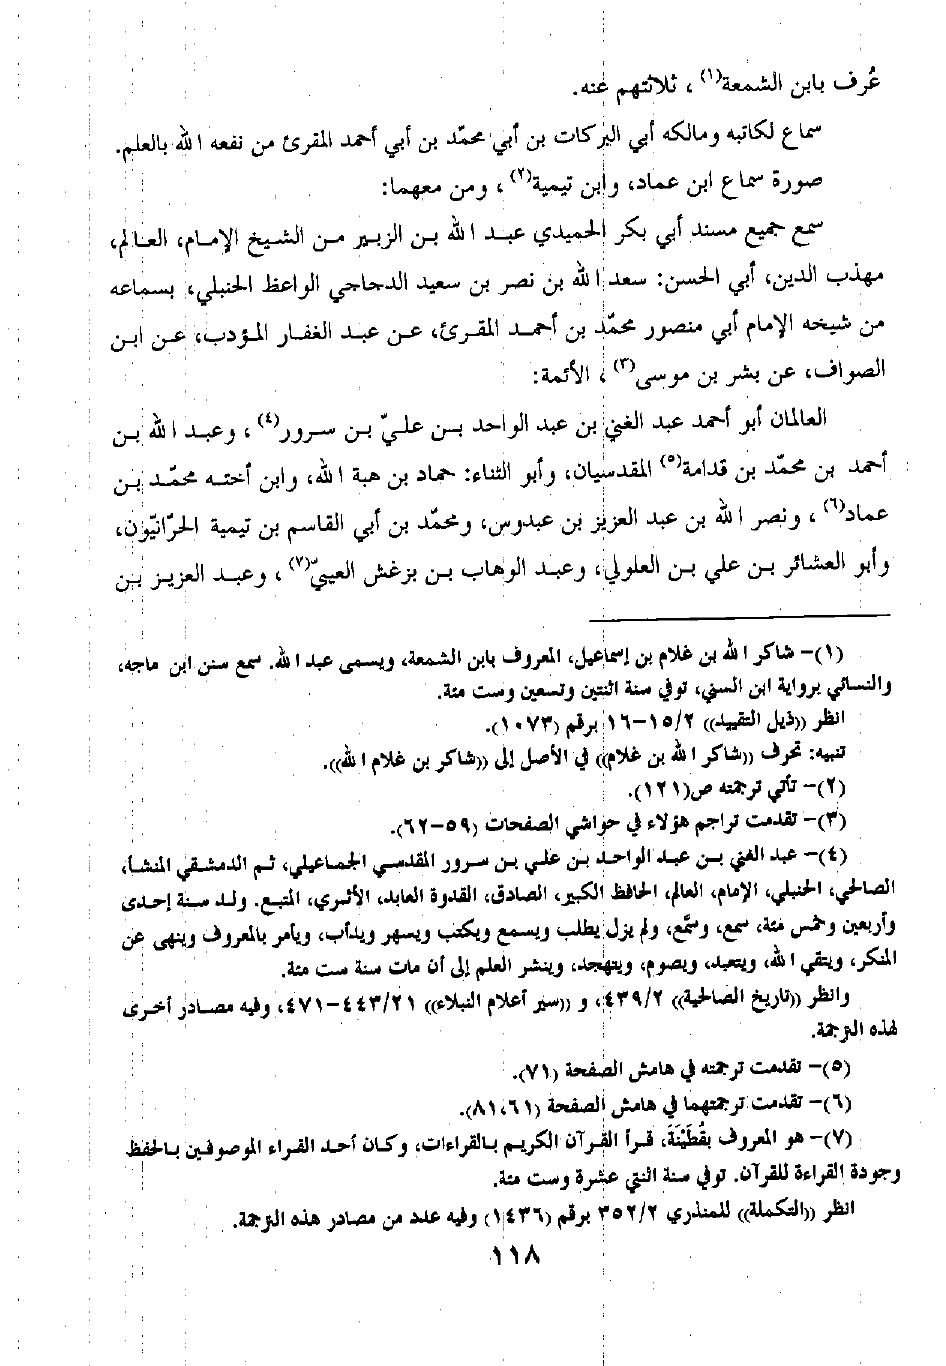 عُرف بابن الشمعة(١)، ثلاثتهم عنه.
سماع لكاتبه ومالكه أبي البركات بن أبي محمّد بن أبي أحمد المقرئ من نفعه الله بالعلم.
صورة سماع ابن عماد، وابن تيمية(٢)، ومن معهما:
سمع جميع مسند أبي بكر الحميدي عبد الله بن الزبير من الشيخ الإمام، العالم،
مهذب الدين، أبي الحسن: سعد الله بن نصر بن سعيد الدجاجي الواعظ الحنبلي، بسماعه
من شيخه الإمام أبي منصور محمّد بن أحمد المقرئ، عن عبد الغفار المؤدب، عن ابن
الصواف، عن بشر بن موسى(٣)، الأئمة:
العالمان أبو أحمد عبد الغني بن عبد الواحد بن عليّ بن سرور(٤)، وعبد الله بن
أحمد بن محمّد بن قدامة(٥) المقدسيان، وأبو الثناء: حماد بن هبة الله، وابن أخته محمّد بن
عماد(٦)، ونصر الله بن عبد العزيز بن عبدوس، ومحمّد بن أبي القاسم بن تيمية الحرّانيّون،
وأبو العشائر بن علي بن العلولي، وعبد الوهاب بن بزغش العيبيّ(٧)، وعبد العزيز بن
(١)- شاكر الله بن غلام بن إسماعيل، المعروف بابن الشمعة، ويسمى عبد الله. سمع سنن ابن ماجه،
والنسائي برواية ابن السني، توفي سنة اثنتين وتسعين وست مئة.
انظر ((ذيل التقييد)) ١٥/٢-١٦ برقم (١٠٧٣).
تنبيه: تحرف ((شاكر الله بن غلام)) في الأصل إلى ((شاكر بن غلام الله)).
(٢)- تأتي ترجمته ص(١٢١).
(٣)- تقدمت تراجم هؤلاء في حواشي الصفحات (٥٩-٦٢).
(٤)- عبد الغني بن عبد الواحد بن علي بن سرور المقدسي الجماعيلي، ثم الدمشقي المنشأ،
الصالحي، الحنبلي، الإمام، العالم، الحافظ الكبير، الصادق، القدوة العابد، الأثري، المتبع. ولد سنة إحدى
وأربعين وخمس مئة، سمع، وسمَّع، ولم يزل يطلب ويسمع ويكتب ويسهر ويدأب، ويأمر بالمعروف وينهى عن
المنكر، ويتقي الله، ويتعبد، ويصوم، ويتهجد، وينشر العلم إلى أن مات سنة ست مئة.
وانظر ((تاريخ الصالحية)) ٤٣٩/٢، و ((سير أعلام النبلاء)) ٤٤٣/٢١-٤٧١، وفيه مصادر أخرى
لهذه الترجمة.
(٥)- تقدمت ترجمته في هامش الصفحة (٧١).
(٦)- تقدمت ترجمتهما في هامش الصفحة (٦١، ٨١).
(٧)- هو المعروف بقُطَيْنَةَ، قرأ القرآن الكريم بالقراءات، وكان أحد القراء الموصوفين بالحفظ
وجودة القراءة للقرآن. توفي سنة اثنتي عشرة وست مئة.
انظر ((التكملة)) للمنذري ٣٥٢/٢ برقم (١٤٣٦) وفيه عدد من مصادر هذه الترجمة.
١١٨